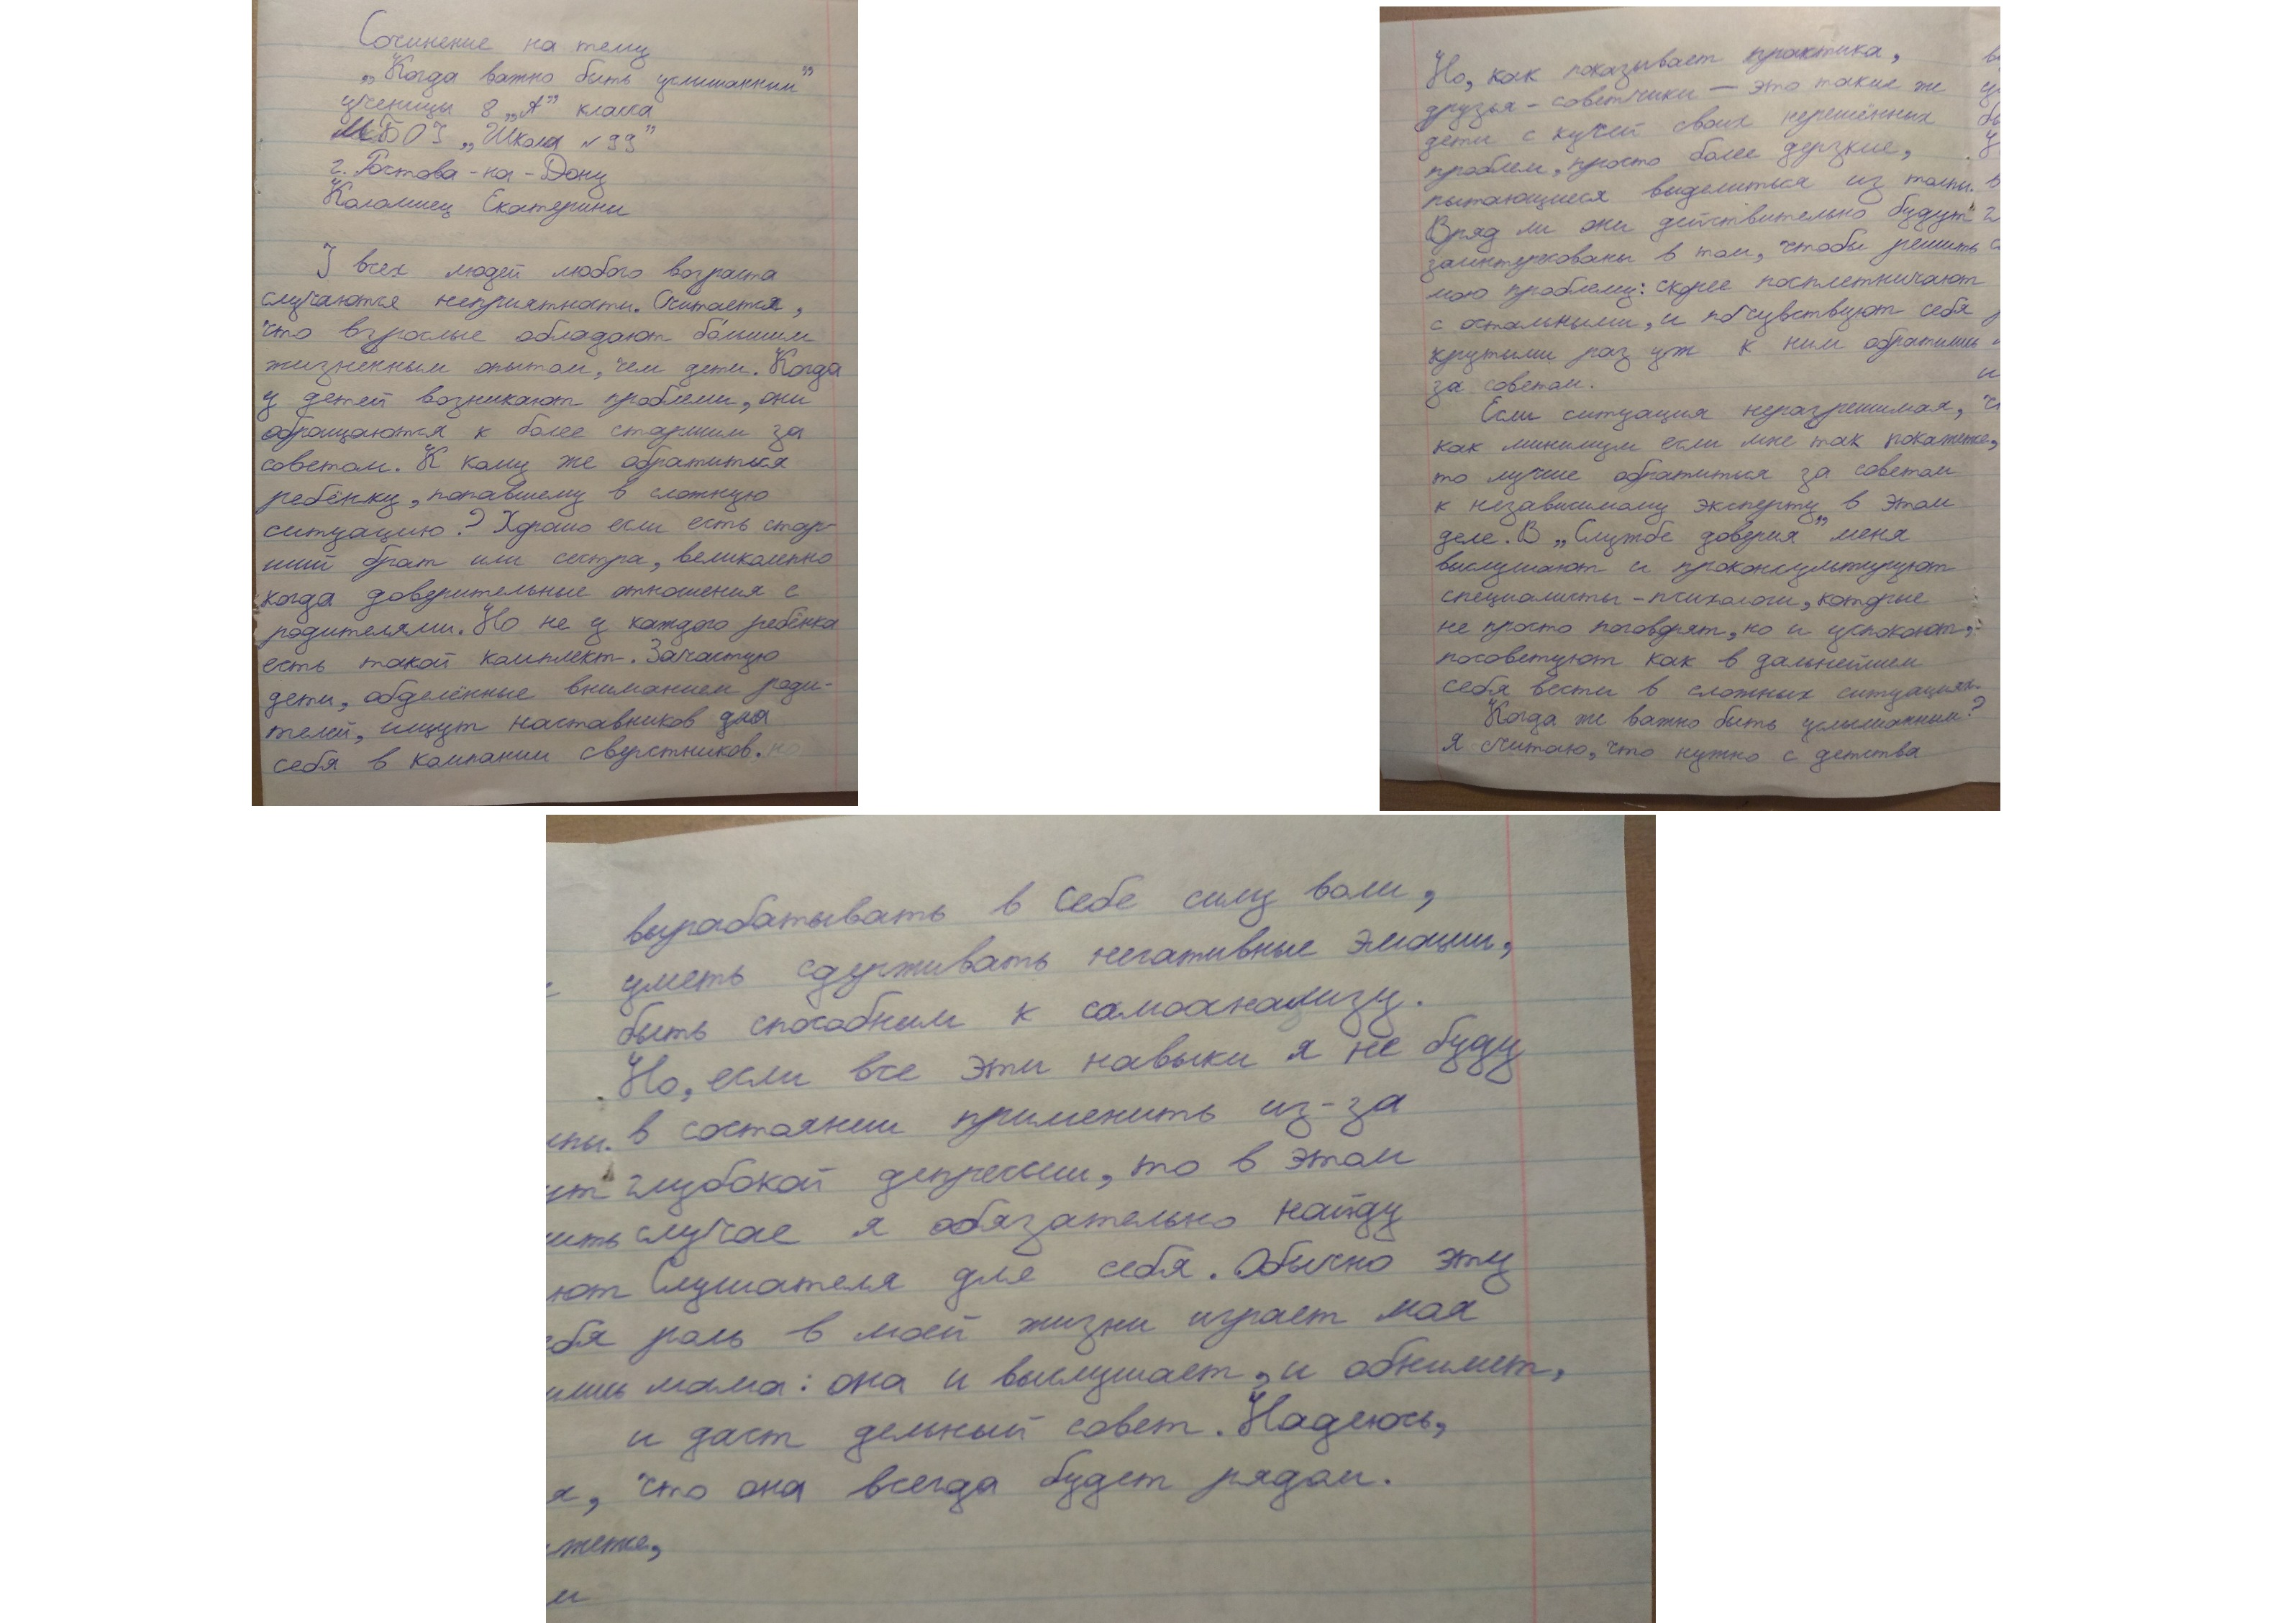 Сочинение на тему
„Когда важно быть услышанным”
ученицы 8 „А” класса
МБОУ „Школа №99”
г. Ростова-на-Дону
Коломиец Екатерины
У всех людей любого возраста
случаются неприятности. Считается,
что взрослые обладают бо́льшим
жизненным опытом, чем дети. Когда
у детей возникают проблемы, они
обращаются к более старшим за
советом. К кому же обратиться
ребёнку, попавшему в сложную
ситуацию? Хорошо если есть стар-
ший брат или сестра, великолепно
когда доверительные отношения с
родителями. Но не у каждого ребёнка
есть такой комплект. Зачастую
дети, обделённые вниманием роди-
телей, ищут наставников для
себя в компании сверстников. но
Но, как показывает практика,
друзья-советчики — это такие же
дети с кучей своих нерешённых
проблем, просто более дерзкие,
пытающиеся выделиться из толпы.
Вряд ли они действительно будут
заинтересованы в том, чтобы решить
мою проблему: скорее посплетничают
с остальными, и почувствуют себя
крутыми раз уж к ним обратились
за советом.
Если ситуация неразрешимая,
как минимум если мне так покажется,
то лучше обратиться за советом
к независимому эксперту в этом
деле. В „Службе доверия” меня
выслушают и проконсультируют
специалисты-психологи, которые
не просто поговорят, но и успокоют,
посоветуют как в дальнейшем
себя вести в сложных ситуациях.
Когда же важно быть услышанным?
Я считаю, что нужно с детства
вырабатывать в себе силу воли,
уметь сдерживать негативные эмоции,
быть способным к самоанализу.
Но, если все эти навыки я не буду
в состоянии применить из-за
глубокой депрессии, то в этом
случае я обязательно найду
Слушателя для себя. Обычно эту
роль в моей жизни играет моя
мама: она и выслушает, и обнимет,
и даст дельный совет. Надеюсь,
что она всегда будет рядом.